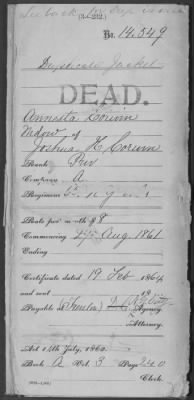 (3-232.)
No. 14.549
Duplicate Jacket
DEAD.
Annetta Corwin
Widow of
Joshua H Corwin
Rank Priv
Company A
Regiment
Rate per month $8
Commencing Aug. 1861
Ending
Certificate dated 19 Feb 1864
and sent
Payable Agency
Attorney.
Act 14th July, 1862.
Book A Vol. 3 Page 240
Clerk.